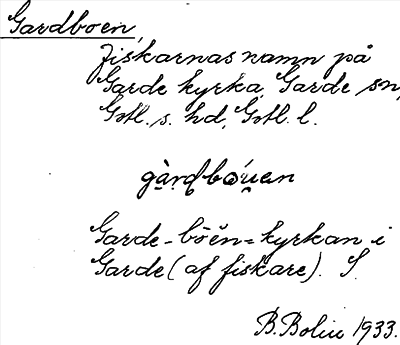 Gardboen,
Fiskarnas namn på
Garde kyrka, Garde sn,
Gotl. s. hd, Gotl. l.
Garde-böen=kyrkan i
Garde (af fiskare). S.
B. Bolin 1933.